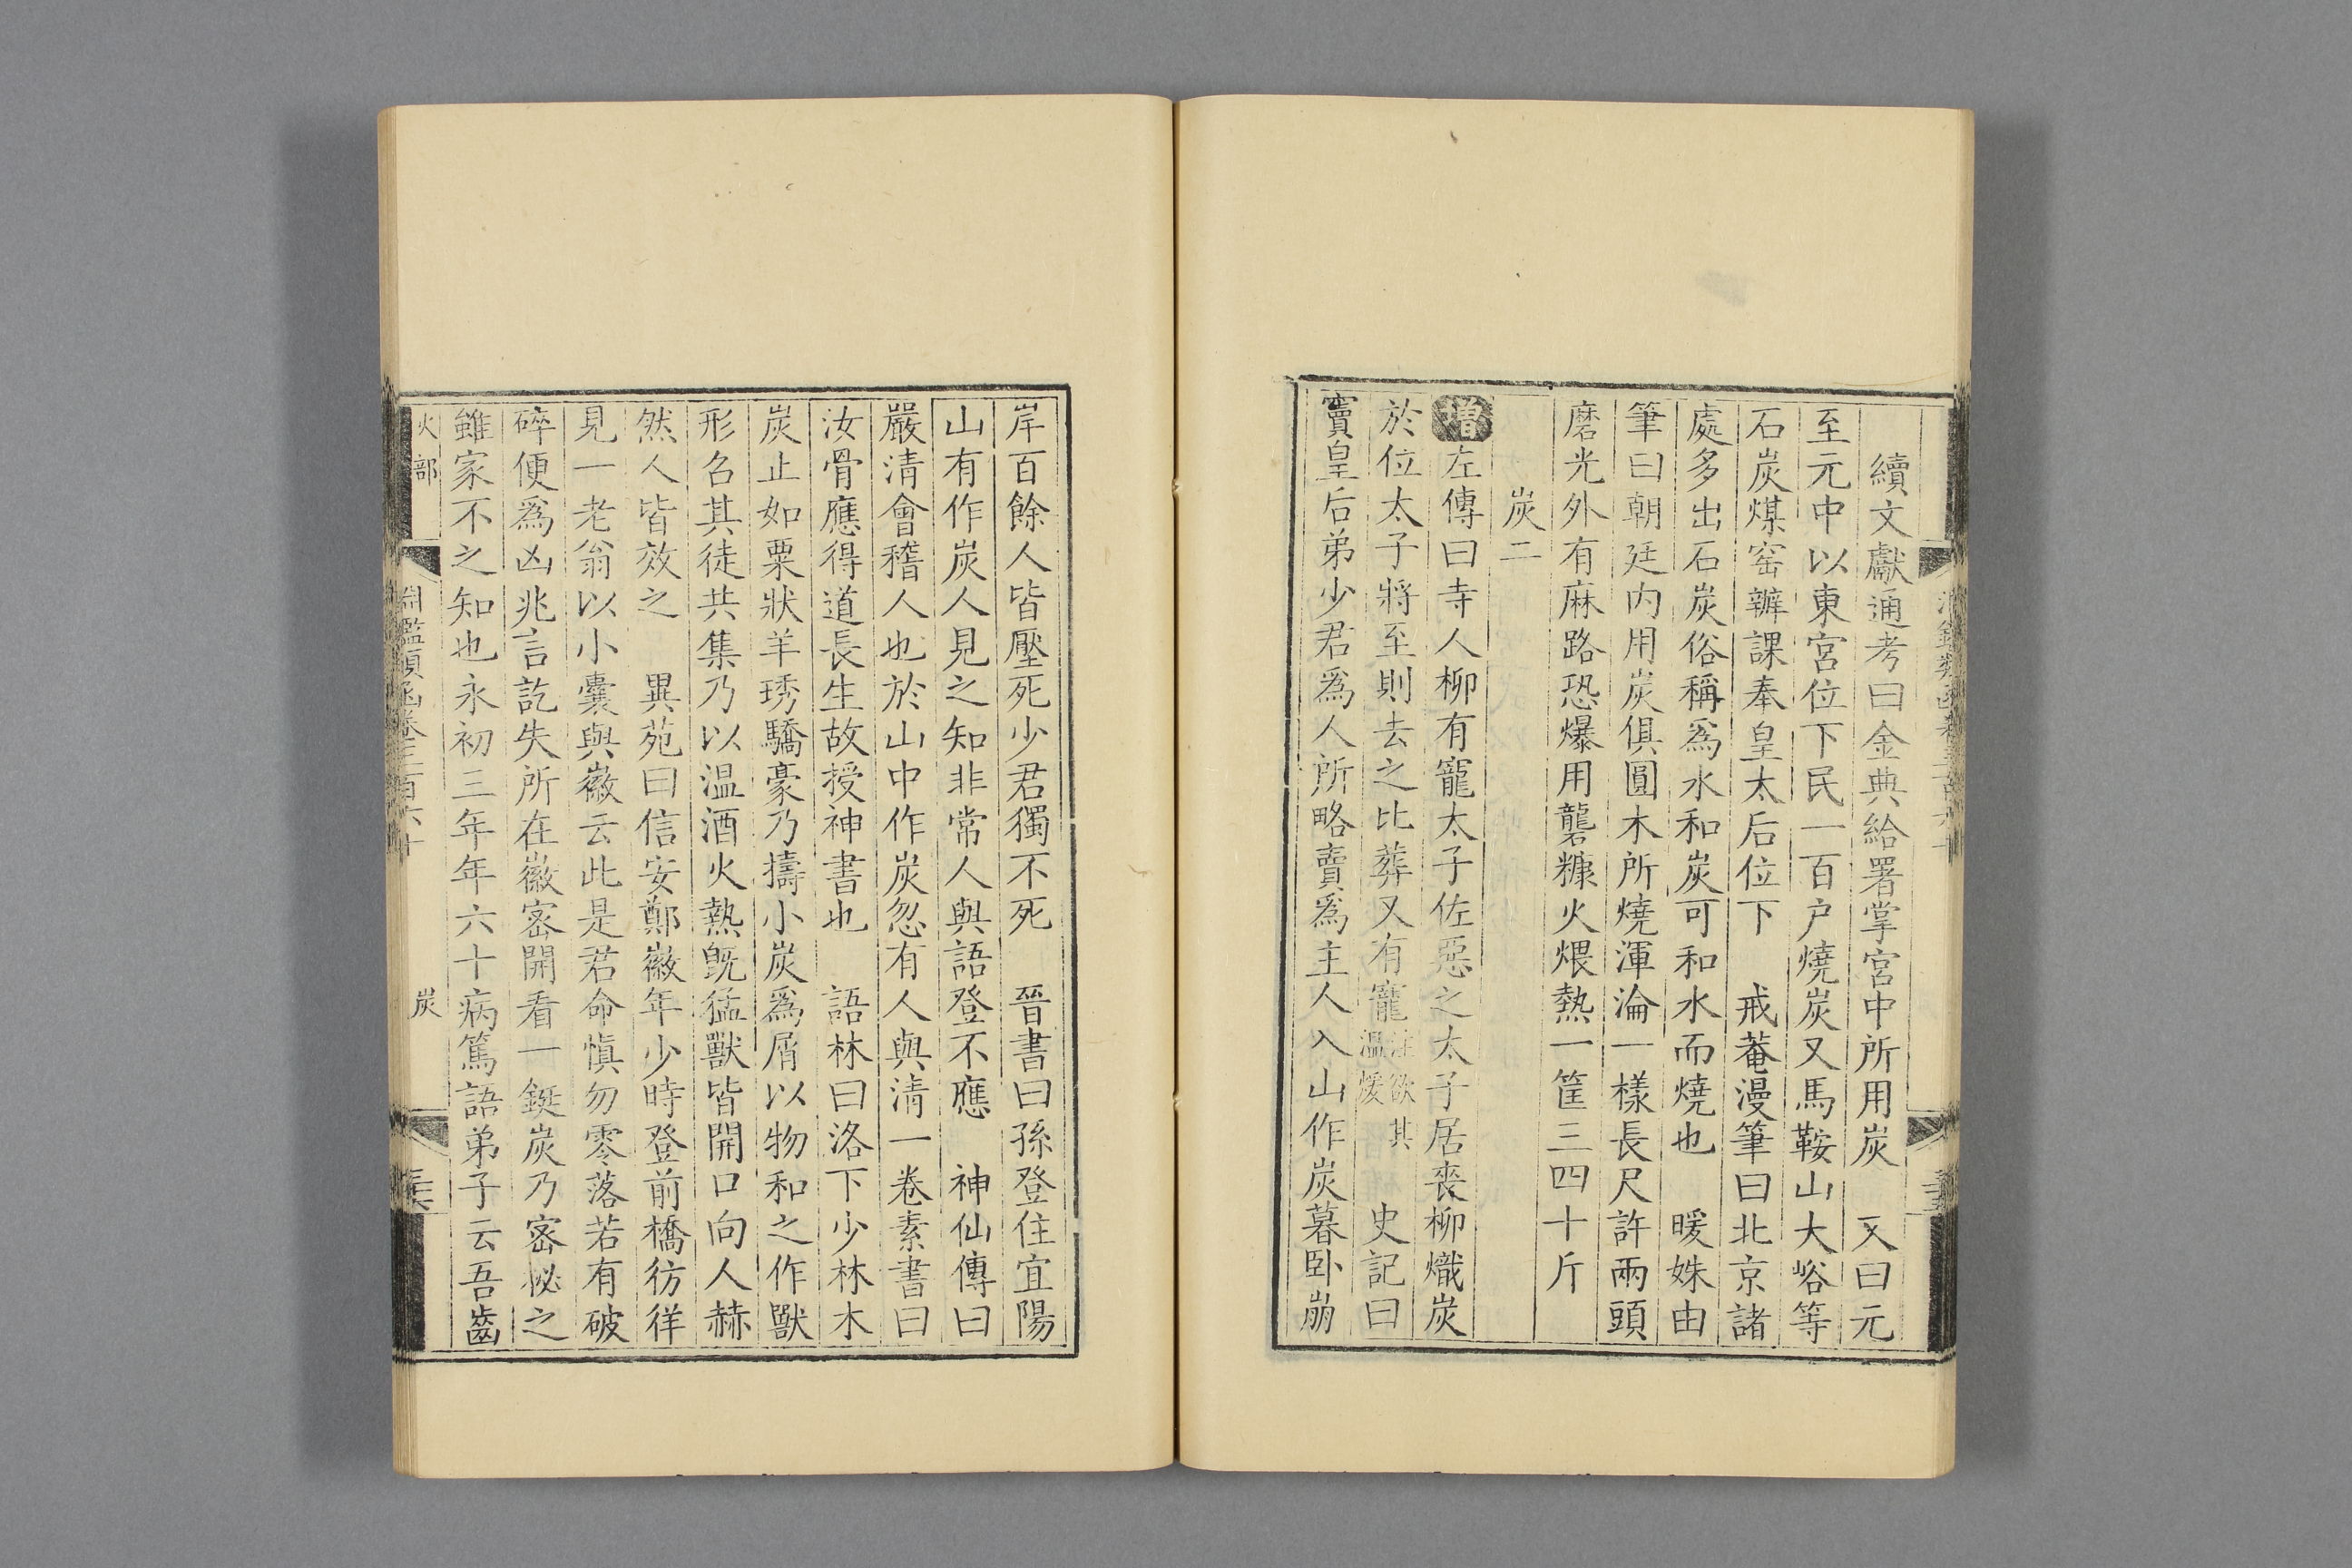 續文獻通考曰金典給署掌宮中所用炭　又曰元
至元中以東宮位下民一百户燒炭又馬鞍山大峪等
石炭煤窑辦課奉皇太后位下　戒菴漫筆曰北京諸
處多出石炭俗稱爲水和炭可和水而燒也　暖姝由
筆曰朝廷内用炭俱圓木所燒渾淪一樣長尺許兩頭
磨光外有麻路恐爆用礱糠火煨熱一筐三四十斤
炭二
增左傳曰寺人柳有寵太子佐惡之太子居喪柳熾炭
於位太子將至則去之比葬又有寵注欲其温煖　史記曰
竇皇后弟少君爲人所略賣爲主人入山作炭暮卧崩
岸百餘人皆壓死少君獨不死　晉書曰孫登住宜陽
山有作炭人見之知非常人與語登不應　神仙傳曰
嚴清會稽人也於山中作炭忽有人與清一卷素書曰
汝骨應得道長生故授神書也　語林曰洛下少林木
炭止如粟狀羊琇驕豪乃擣小炭爲屑以物和之作獸
形名其徒共集乃以温酒火熱旣猛獸皆開口向人赫
然人皆效之　異苑曰信安鄭徽年少時登前橋彷徉
見一老翁以小囊與徽云此是君命愼勿零落若有破
碎便爲凶兆言訖失所在徽密開看一鋌炭乃密秘之
雖家不之知也永初三年年六十病篤語弟子云吾齒
火部
淵鑑類函卷三百六十
炭